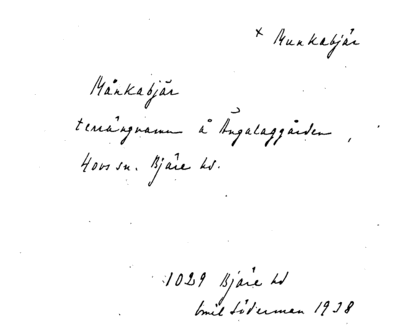 + Munkabjär
Månkabjär
terrängnamn å Ängalaggården,
Hovs sn. Bjäre hd.
1029 Bjäre hd
Emil Söderman 1938